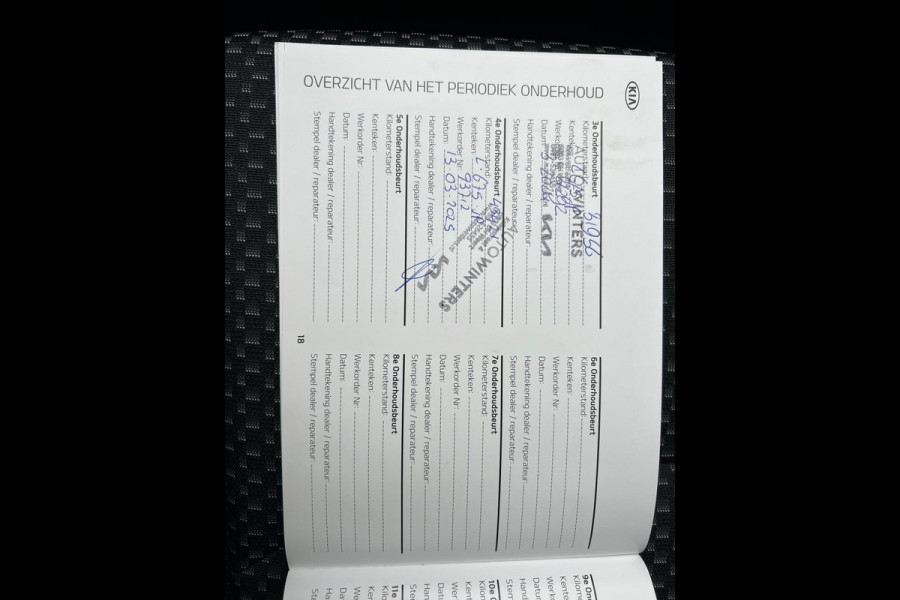 KIA
OVERZICHT VAN HET PERIODIEK ONDERHOUD
3e Onderhoudsbeurt
31966
Datum:
Handtekening dealer / reparateur:
Stempel dealer / reparateur:
AUTO WINTERS
KIA
4e Onderhoudsbeurt
Kilometerstand:
Kenteken:
Werkorder Nr:
Datum: 13.03.2025
Handtekening dealer / reparateur:
Stempel dealer / reparateur:
AUTO WINTERS
KIA
5e Onderhoudsbeurt
Kilometerstand:
Kenteken:
Werkorder Nr:
Datum:
Handtekening dealer / reparateur:
Stempel dealer / reparateur:
6e Onderhoudsbeurt
Kilometerstand:
Kenteken:
Werkorder Nr:
Datum:
Handtekening dealer / reparateur:
Stempel dealer / reparateur:
7e Onderhoudsbeurt
Kilometerstand:
Kenteken:
Werkorder Nr:
Datum:
Handtekening dealer / reparateur:
Stempel dealer / reparateur:
8e Onderhoudsbeurt
Kilometerstand:
Kenteken:
Werkorder Nr:
Datum:
Handtekening dealer / reparateur:
Stempel dealer / reparateur:
18